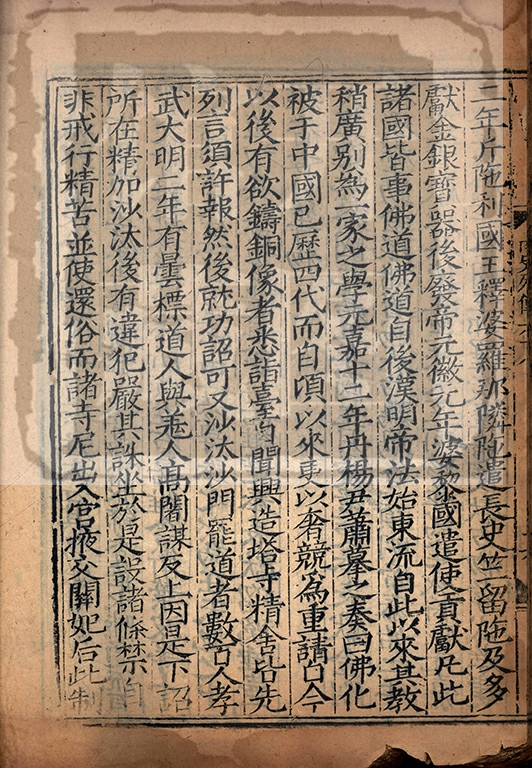 二年斤陁利國王釋婆羅那隣陁遣長史竺留陁及多
獻金銀寶器後廢帝元徽元年婆黎國遣使貢獻凡此
諸國皆事佛道佛道自後漢明帝法始東流自此以來其教
稍廣别為一家之學元嘉十二年丹楊尹蕭摹之奏曰佛化
被于中國已歷四代而自頃以來更以奢競為重請自今
以後有欲鑄銅像者悉詣臺自聞興造塔寺精舍皆先
列言須許報然後就功詔可又沙汰沙門罷道者數百人孝
武大明二年有曇標道人與羌人高闍謀反上因是下詔
所在精加沙汰後有違犯嚴其誅坐於是設諸條禁自
非戒行精苦並使還俗而諸寺尼出入宮掖交關妃后此制